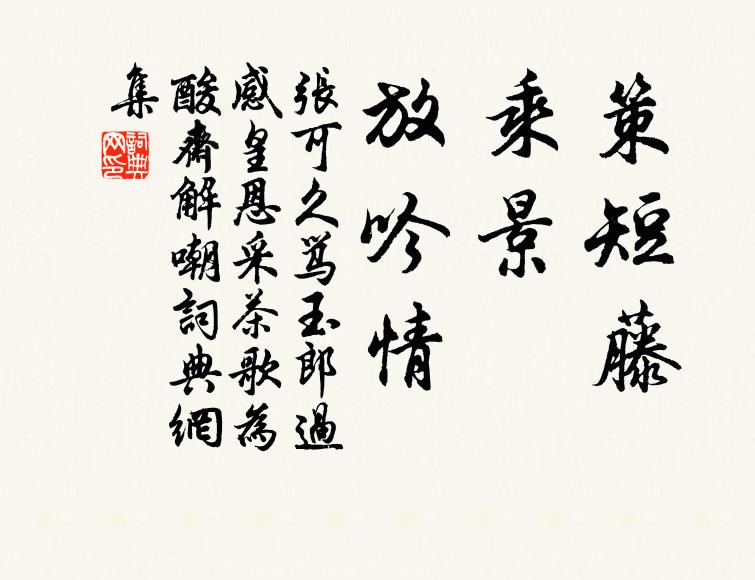 策短藤
乘景
放吟情
張可久駡玉郎過
感皇恩采茶歌為
酸齋解嘲詞典網
集
詞典
网印